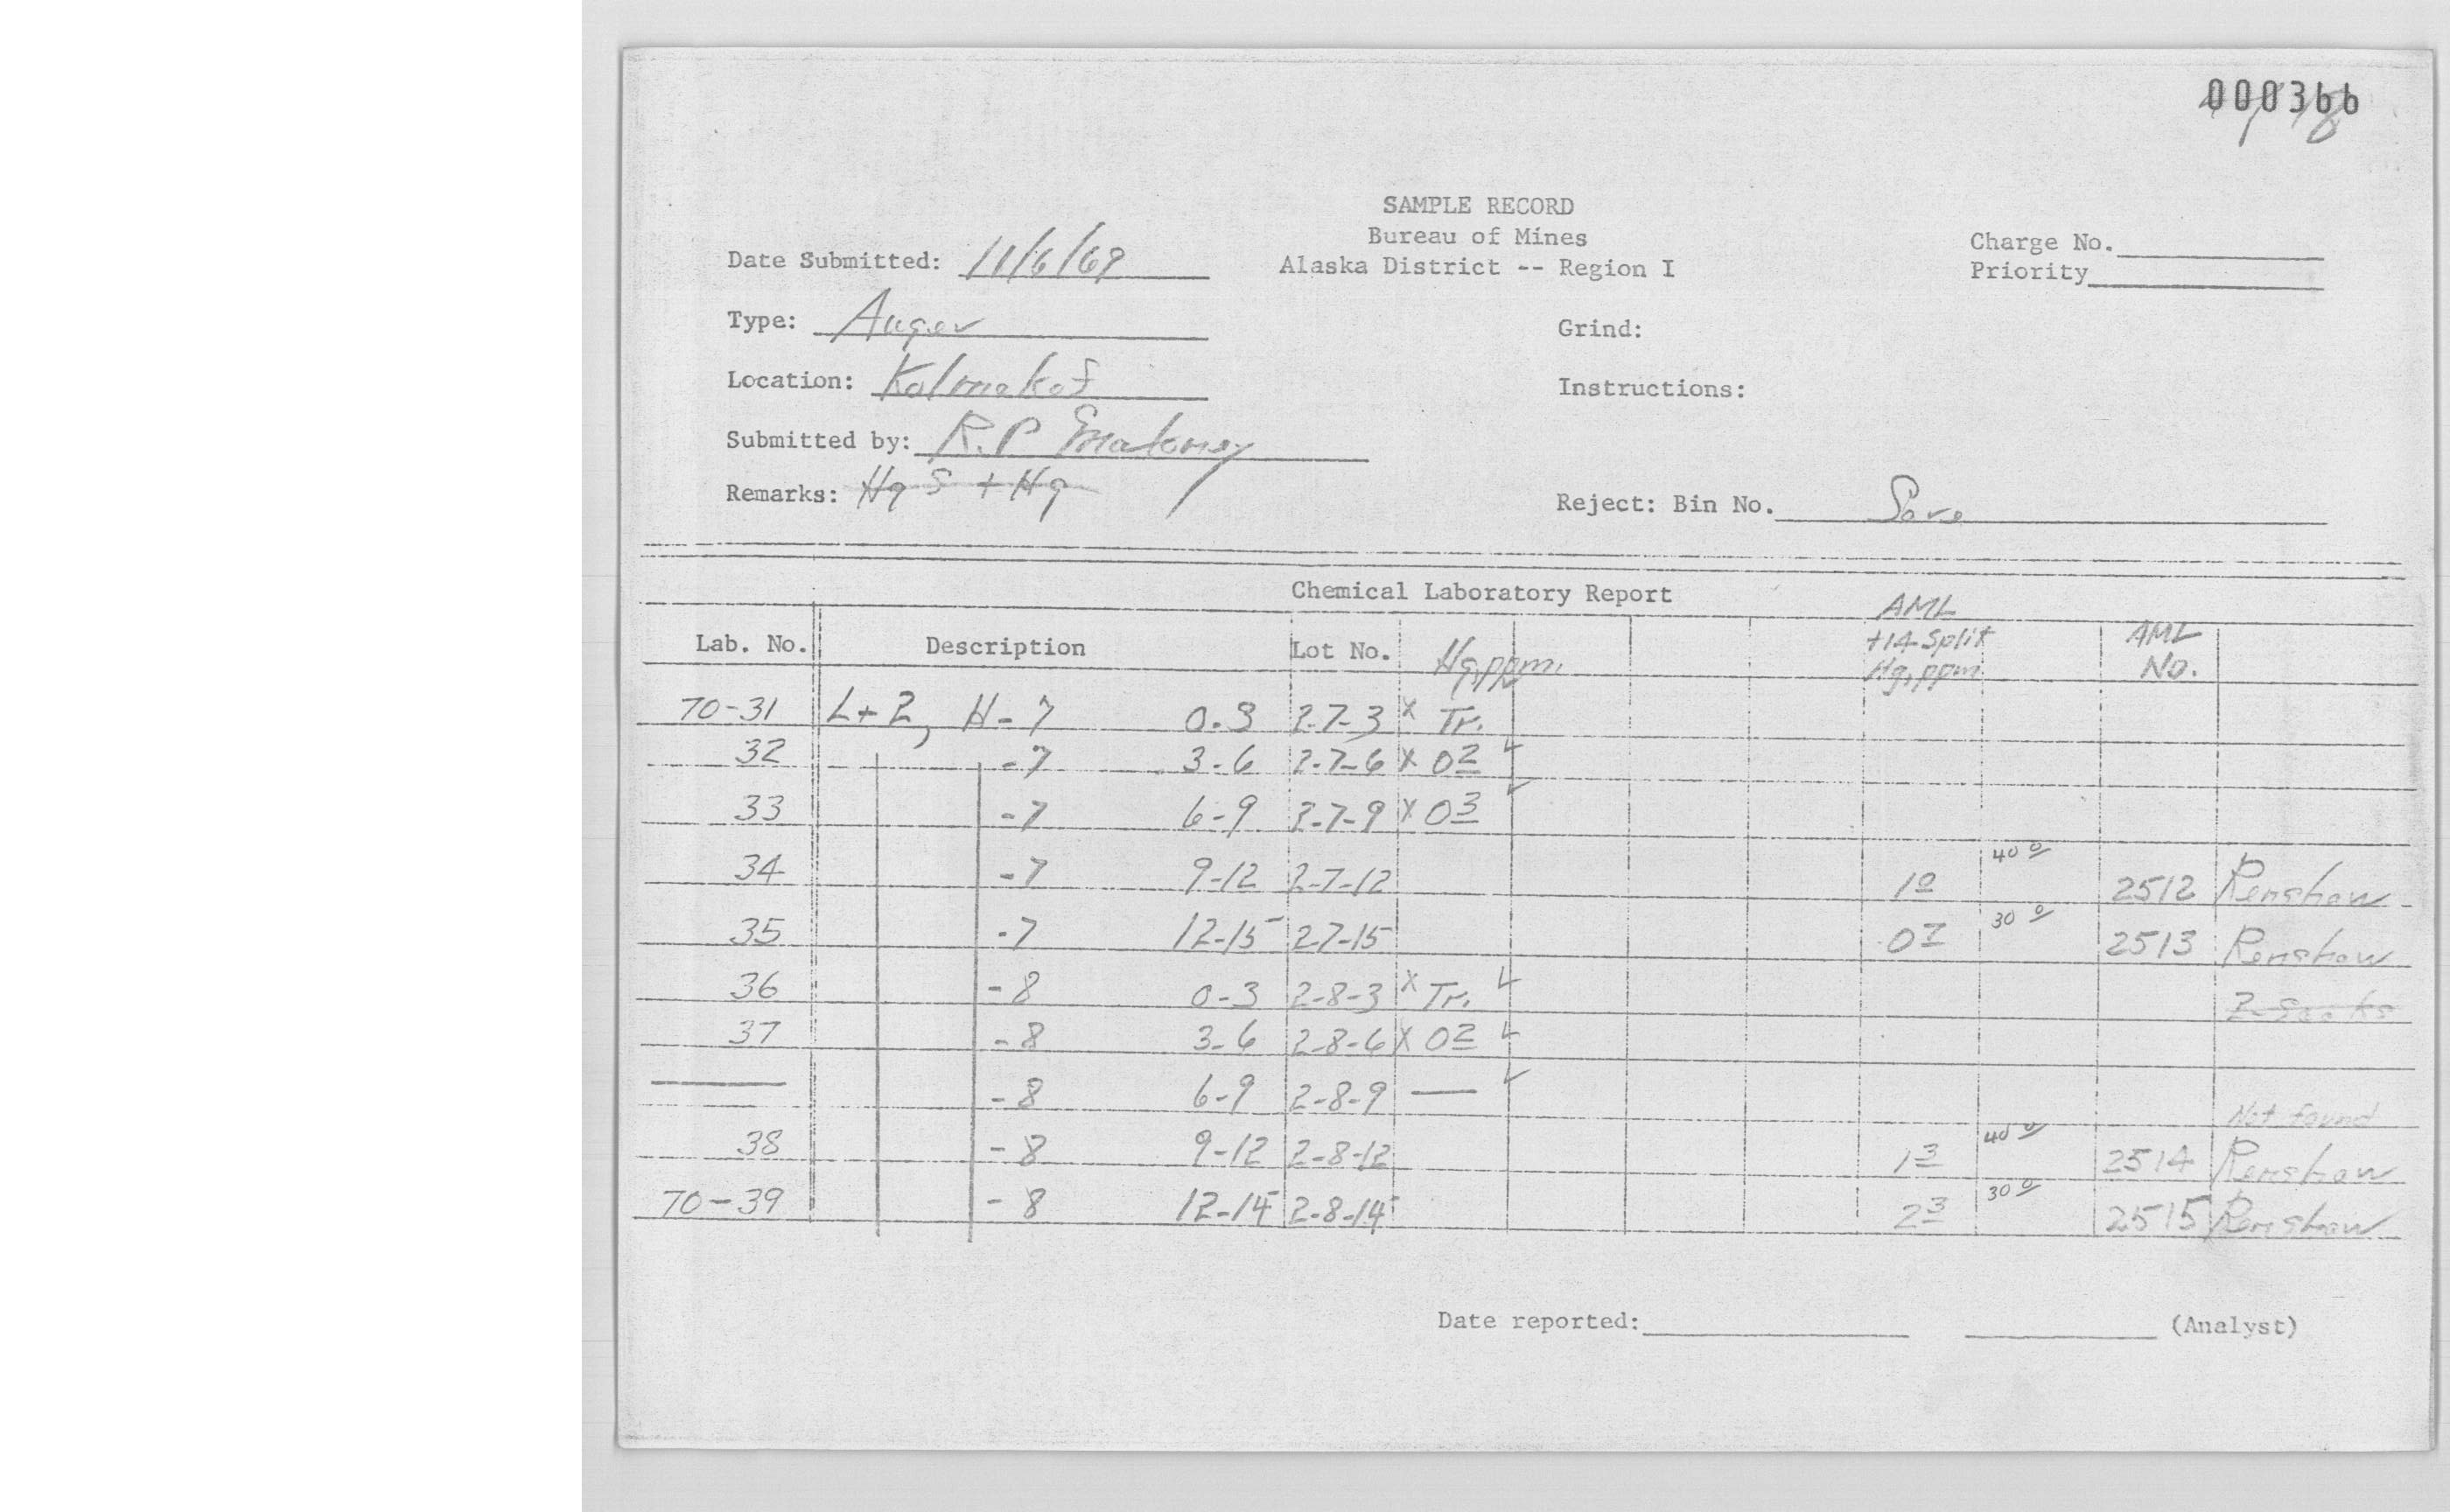 000366
SAMPLE RECORD
Bureau of Mines
Alaska District -- Region I
Charge No.
Priority
Date Submitted: 11/6/69
Type: Auger
Grind:
Location: Kolmakof
Instructions:
Submitted by: R.P Maloney
Remarks: HgS + Hg
Reject: Bin No. Save
Chemical Laboratory Report
Lab. No. Description Lot No. Hg, ppm. AML +14 Split Hg, ppm AML No.
70-31 L+2, H-7 0-3 2-7-3 x Tr.
32 -7 3-6 2-7-6 x 02
33 -7 6-9 2-7-9 x 03
34 -7 9-12 2-7-12 10 400 2512 Renshaw
35 -7 12-15 2-7-15 07 300 2513 Renshaw
36 -8 0-3 2-8-3 x Tr.
37 -8 3-6 2-8-6 x 02
— -8 6-9 2-8-9 — Not found
38 -8 9-12 2-8-12 13 400 2514 Renshaw
70-39 -8 12-14 2-8-14 23 300 2515 Renshaw
Date reported: (Analyst)